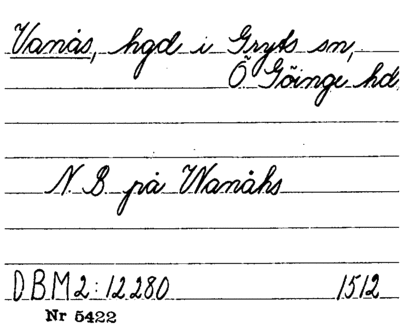 Vanås, hgd i Gryts sn,
Ö Göinge hd
N. B. på Wanåhs
DBM2:12280 1512
Nr 5422